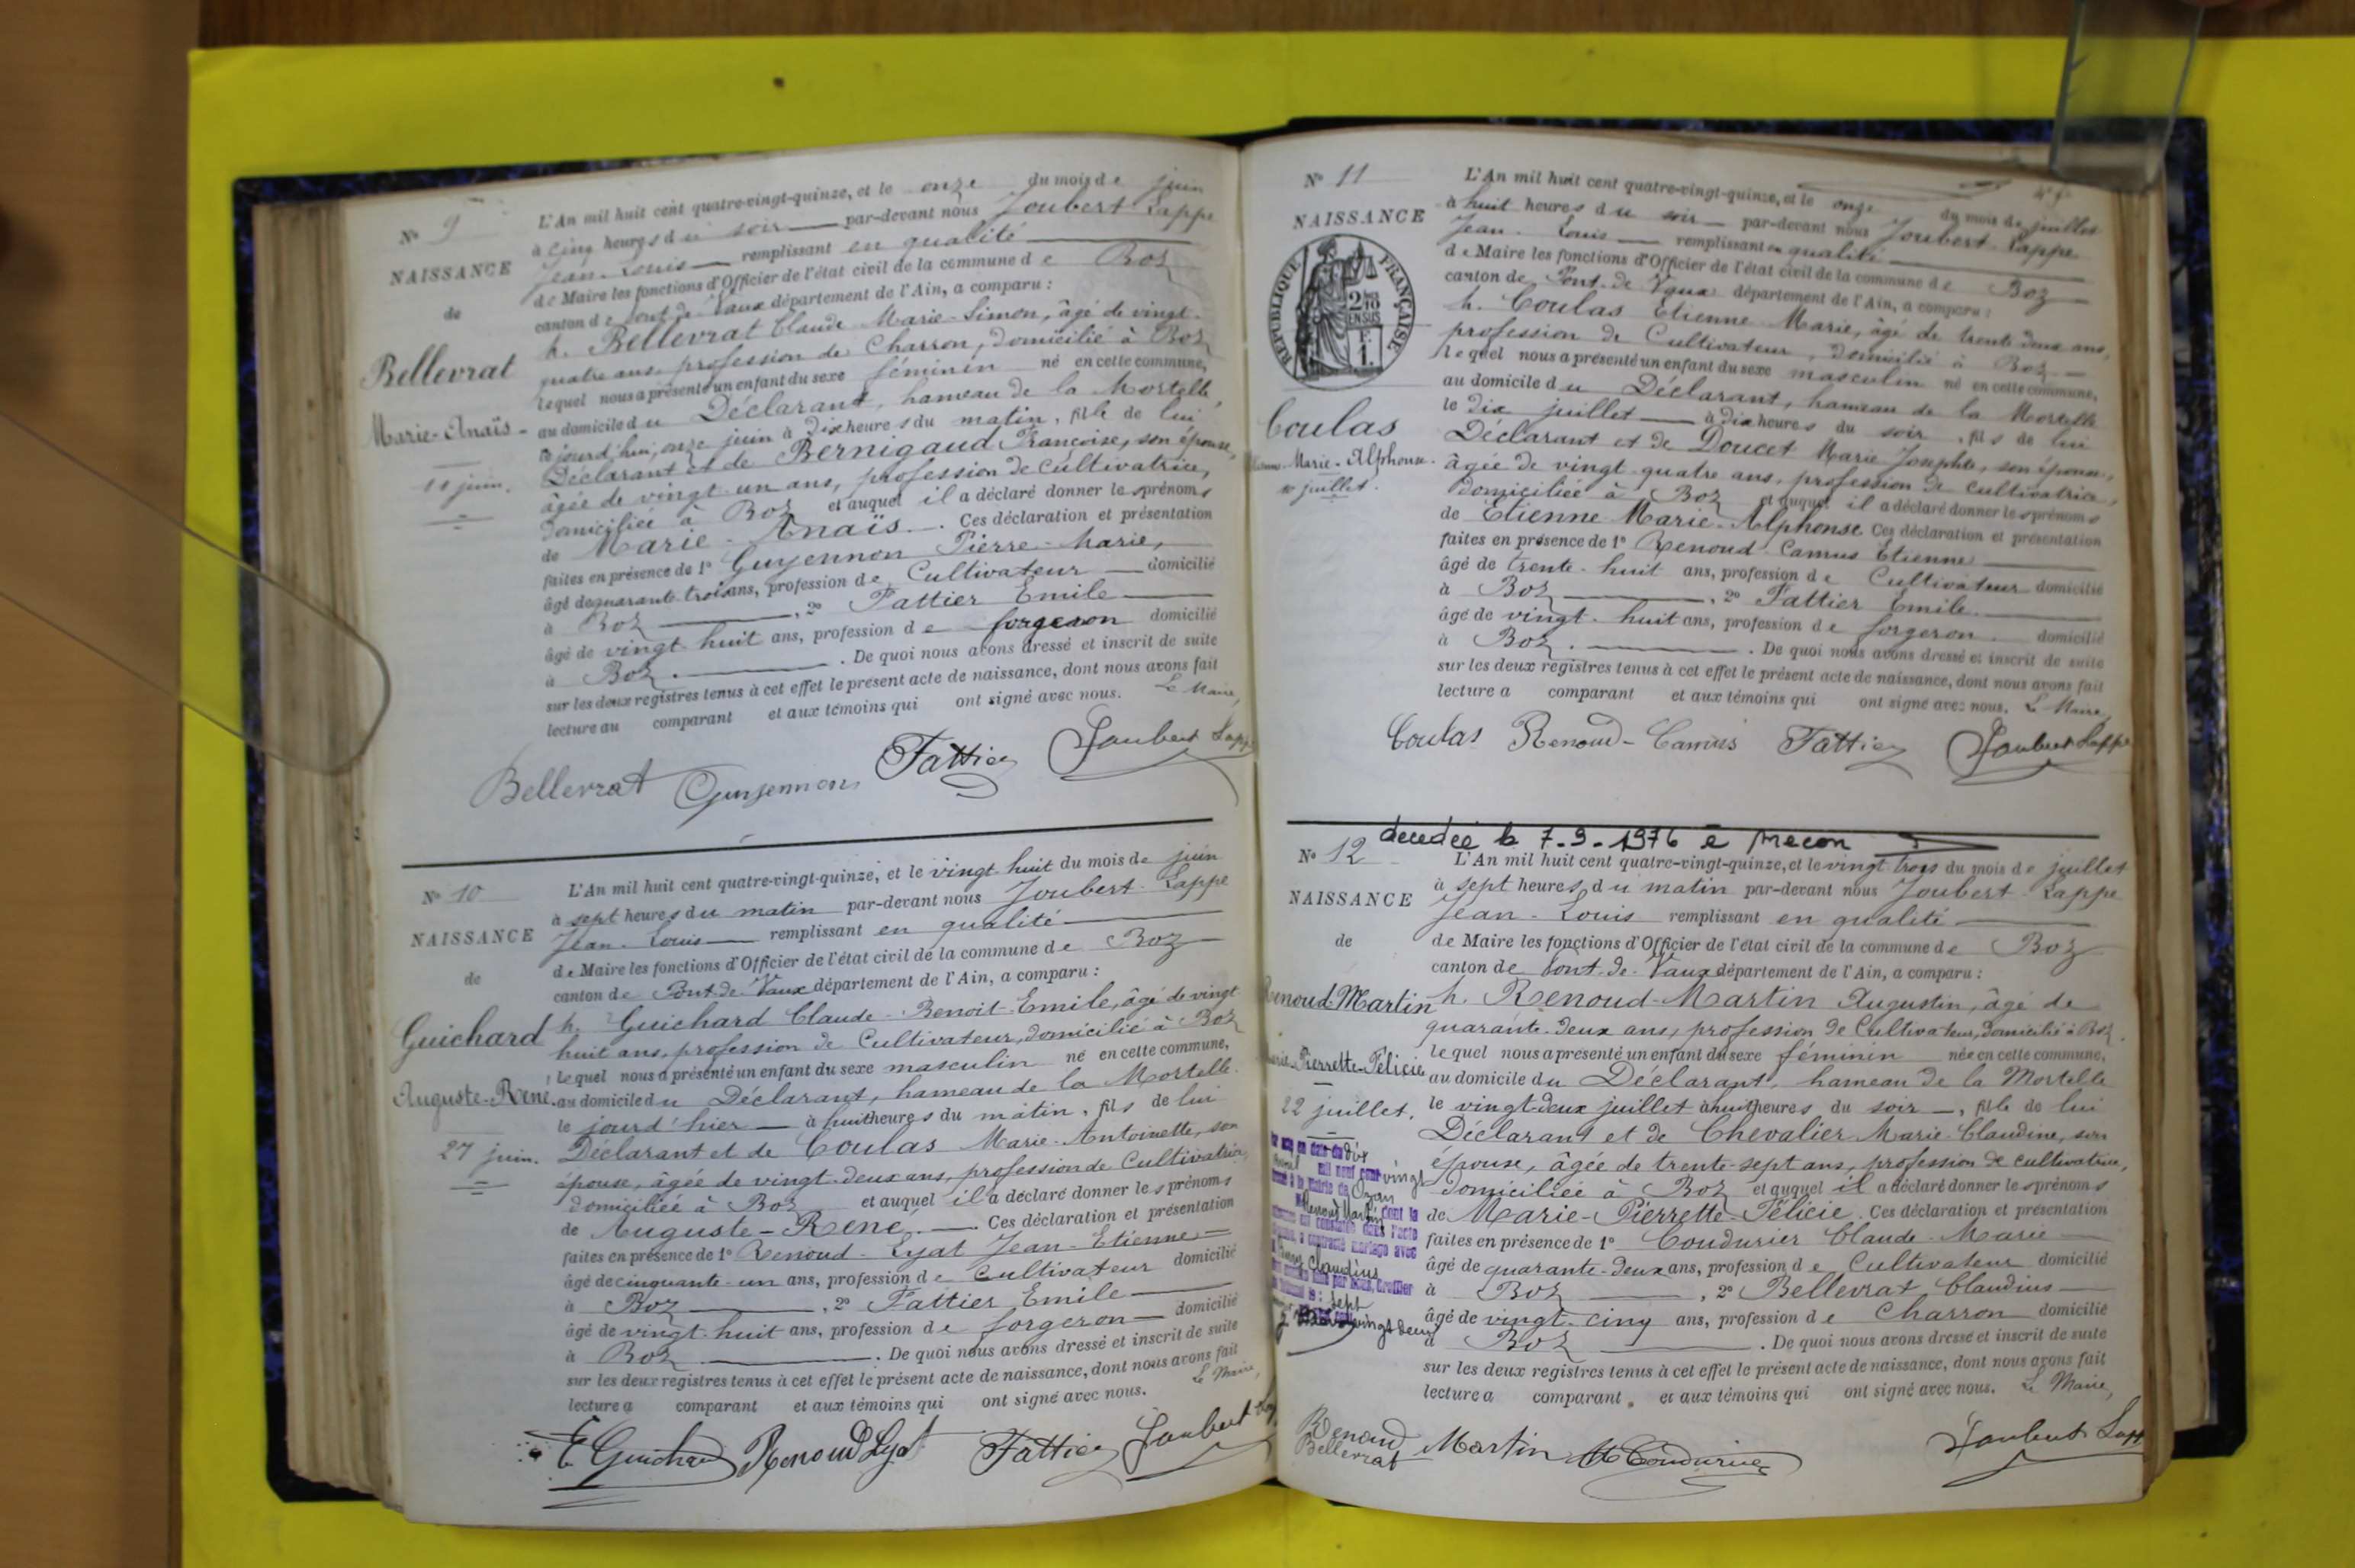 N° 9
NAISSANCE
de
Bellevrat
Marie-Anaïs
11 juin.
L'An mil huit cent quatre-vingt-quinze, et le onze du mois de juin
à cinq heures du soir par-devant nous Joubert-Lappe
Jean-Louis remplissant en qualité
de Maire les fonctions d'Officier de l'état civil de la commune de Boz
canton de Pont-de-Vaux département de l'Ain, a comparu :
h. Bellevrat Claude Marie-Simon, âgé de vingt-
quatre ans, profession de Charron, domicilié à Boz
lequel nous a présenté un enfant du sexe féminin né en cette commune,
au domicile du Déclarant, hameau de la Mortelle,
ce jourd'hui, onze juin à dix heures du matin, fille de lui
Déclarant et de Bernigaud Françoise, son épouse,
âgée de vingt-un ans, profession de cultivatrice,
domiciliée à Boz et auquel il a déclaré donner les prénoms
de Marie-Anaïs. Ces déclaration et présentation
faites en présence de 1° Guyennon Pierre-Marie,
âgé de quarante-trois ans, profession de Cultivateur domicilié
à Boz, 2° Fattier Emile
âgé de vingt huit ans, profession de forgeron domicilié
à Boz. De quoi nous avons dressé et inscrit de suite
sur les deux registres tenus à cet effet le présent acte de naissance, dont nous avons fait
lecture au comparant et aux témoins qui ont signé avec nous. Le Maire,
Bellevrat Guyennon Fattier Joubert Lappe
N° 10
NAISSANCE
de
Guichard
Auguste-René.
27 juin.
L'An mil huit cent quatre-vingt-quinze, et le vingt-huit du mois de juin
à sept heures du matin par-devant nous Joubert-Lappe
Jean-Louis remplissant en qualité
de Maire les fonctions d'Officier de l'état civil de la commune de Boz
canton de Pont-de-Vaux département de l'Ain, a comparu :
h. Guichard Claude-Benoit-Emile, âgé de vingt
huit ans, profession de Cultivateur, domicilié à Boz
lequel nous a présenté un enfant du sexe masculin né en cette commune,
au domicile du Déclarant, hameau de la Mortelle.
le jourd'hier à huit heures du matin, fils de lui
Déclarant et de Coulas Marie-Antoinette, son
épouse, âgée de vingt-deux ans, profession de Cultivatrice,
domiciliée à Boz et auquel il a déclaré donner les prénoms
de Auguste-René. Ces déclaration et présentation
faites en présence de 1° Renoud-Lyat Jean-Etienne
âgé de cinquante-un ans, profession de Cultivateur domicilié
à Boz, 2° Fattier Emile
âgé de vingt-huit ans, profession de forgeron domicilié
à Boz. De quoi nous avons dressé et inscrit de suite
sur les deux registres tenus à cet effet le présent acte de naissance, dont nous avons fait
lecture a comparant et aux témoins qui ont signé avec nous. Le Maire,
E Guichard Renoud Lyat Fattier Joubert
N° 11
NAISSANCE
RÉPUBLIQUE FRANÇAISE
Coulas
Marie-Alphonse.
10 juillet.
L'An mil huit cent quatre-vingt-quinze, et le onze du mois de juillet
à huit heures du soir par-devant nous Joubert-Lappe
Jean-Louis remplissant en qualité
de Maire les fonctions d'Officier de l'état civil de la commune de Boz
canton de Pont-de-Vaux département de l'Ain, a comparu :
h. Coulas Etienne-Marie, âgé de trente deux ans,
profession de Cultivateur, domicilié à Boz
lequel nous a présenté un enfant du sexe masculin né en cette commune,
au domicile du Déclarant, hameau de la Mortelle
le dix juillet à dix heures du soir, fils de lui
Déclarant et de Doucet Marie Josephte, son épouse,
âgée de vingt-quatre ans, profession de cultivatrice,
domiciliée à Boz et auquel il a déclaré donner les prénoms
de Etienne-Marie-Alphonse Ces déclaration et présentation
faites en présence de 1° Renoud-Camus Etienne
âgé de trente-huit ans, profession de Cultivateur domicilié
à Boz, 2° Fattier Emile.
âgé de vingt-huit ans, profession de forgeron domicilié
à Boz. De quoi nous avons dressé et inscrit de suite
sur les deux registres tenus à cet effet le présent acte de naissance, dont nous avons fait
lecture a comparant et aux témoins qui ont signé avec nous. Le Maire,
Coulas Renoud-Camus Fattier Joubert Lappe
décédée le 7-9-1976 à Macon
N° 12
NAISSANCE
de
Renoud-Martin
Marie-Pierrette-Félicie
22 juillet.
L'An mil huit cent quatre-vingt-quinze, et le vingt trois du mois de juillet
à sept heures du matin par-devant nous Joubert-Lappe
Jean-Louis remplissant en qualité
de Maire les fonctions d'Officier de l'état civil de la commune de Boz
canton de Pont-de-Vaux département de l'Ain, a comparu :
h. Renoud-Martin Augustin, âgé de
quarante-deux ans, profession de Cultivateur, domicilié à Boz.
lequel nous a présenté un enfant du sexe féminin née en cette commune,
au domicile du Déclarant, hameau de la Mortelle
le vingt-deux juillet à huit heures du soir, fille de lui
Déclarant et de Chevalier Marie-Claudine, son
épouse, âgée de trente-sept ans, profession de cultivatrice,
domiciliée à Boz et auquel il a déclaré donner les prénoms
de Marie-Pierrette-Félicie. Ces déclaration et présentation
faites en présence de 1° Coudurier Claude-Marie
âgé de quarante-deux ans, profession de Cultivateur domicilié
à Boz, 2° Bellevrat Claudius
âgé de vingt-cinq ans, profession de Charron domicilié
à Boz. De quoi nous avons dressé et inscrit de suite
sur les deux registres tenus à cet effet le présent acte de naissance, dont nous avons fait
lecture a comparant, et aux témoins qui ont signé avec nous. Le Maire,
Renoud Martin Coudurier Joubert Lapp
Bellevrat